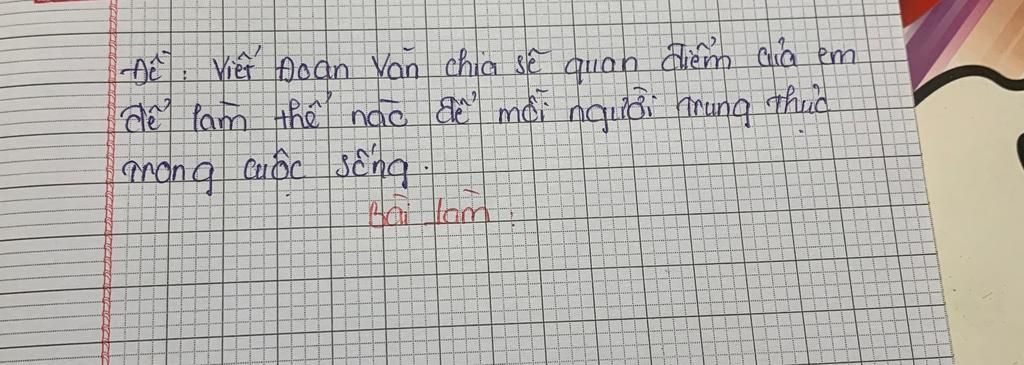 -Đề : Viết Đoạn Văn chia sẻ quan điểm của em
để làm thế nào để mỗi người trung thực
trong cuộc sống.
Bài làm :